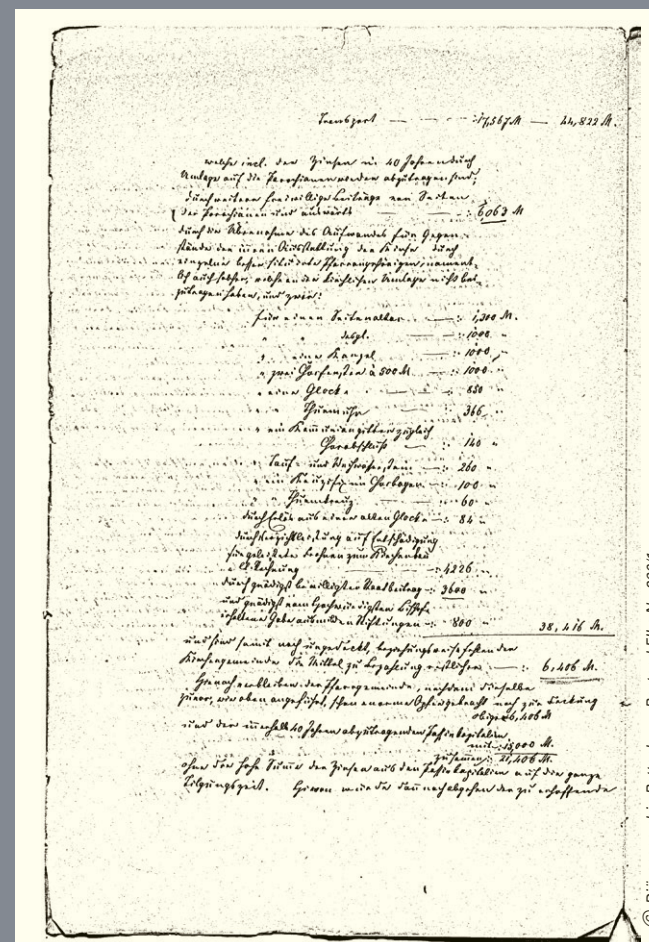 Transport — — 17,567 M — 44,822 M.
welche incl. der Zinsen in 40 Jahren durch
Umlage auf die Parochianen werden abzutragen sind,
durch weitere freiwillige Beiträge von Seiten
der Parochianen und auswärts — 6,063 M
durch die Übernahme des Aufwandes für Gegen
stände der innern Ausstattung der Kirche durch
einzelne besser situirte Pfarrangehörigen, nament
lich auch solcher, welche an der kirchlichen Umlage nicht bei
zutragen haben, und zwar:
für einen Seitenaltar — 1,300 M.
" " desgl. — 1000 "
" eine Kanzel — 1000 "
" zwei Chorfenster à 500 M — 1000 "
" eine Glocke — 850 "
" " Thurmuhr — 366 "
" ein Kommuniongitter zugleich
Chorabschluß — 140 "
" Tauf- und Weihwasserstein — 260 "
" ein Kreuzifix im Chorbogen — 100 "
" " Thurmkreuz — 60 "
durch Erlös aus einer alten Glocke — 84 "
durch Verzichtleistung auf Entschädigung
für geleistete Frohnen zum Kirchenbau
Rechnung — 4226
durch gnädigst bewilligten Staatbeitrag — 3600
und gnädigst vom Hochwürdigsten Bischofe
erhaltene Gabe aus milden Stiftungen — 800 " 38,416 M.
und sind somit noch ungedeckt, beziehungsweise fehlen der
Kirchengemeinde die Mittel zu Bezahlung restlicher — 6,406 M.
Hienach verbleiben der Pfarrgemeinde, nachdem dieselbe
zuvor, wie oben angeführt, schon enorme Opfer gebracht noch zur Deckung
obiger 6,406 M
und der innerhalb 40 Jahren abzutragenden Passivkapitalien
mit 15,000 M.
zusammen: 21,406 M.
ohne die hohe Summe der Zinsen aus den Passivkapitalien auf die ganze
Tilgungszeit. Hievon würde dann noch abgehen der zu erhoffende